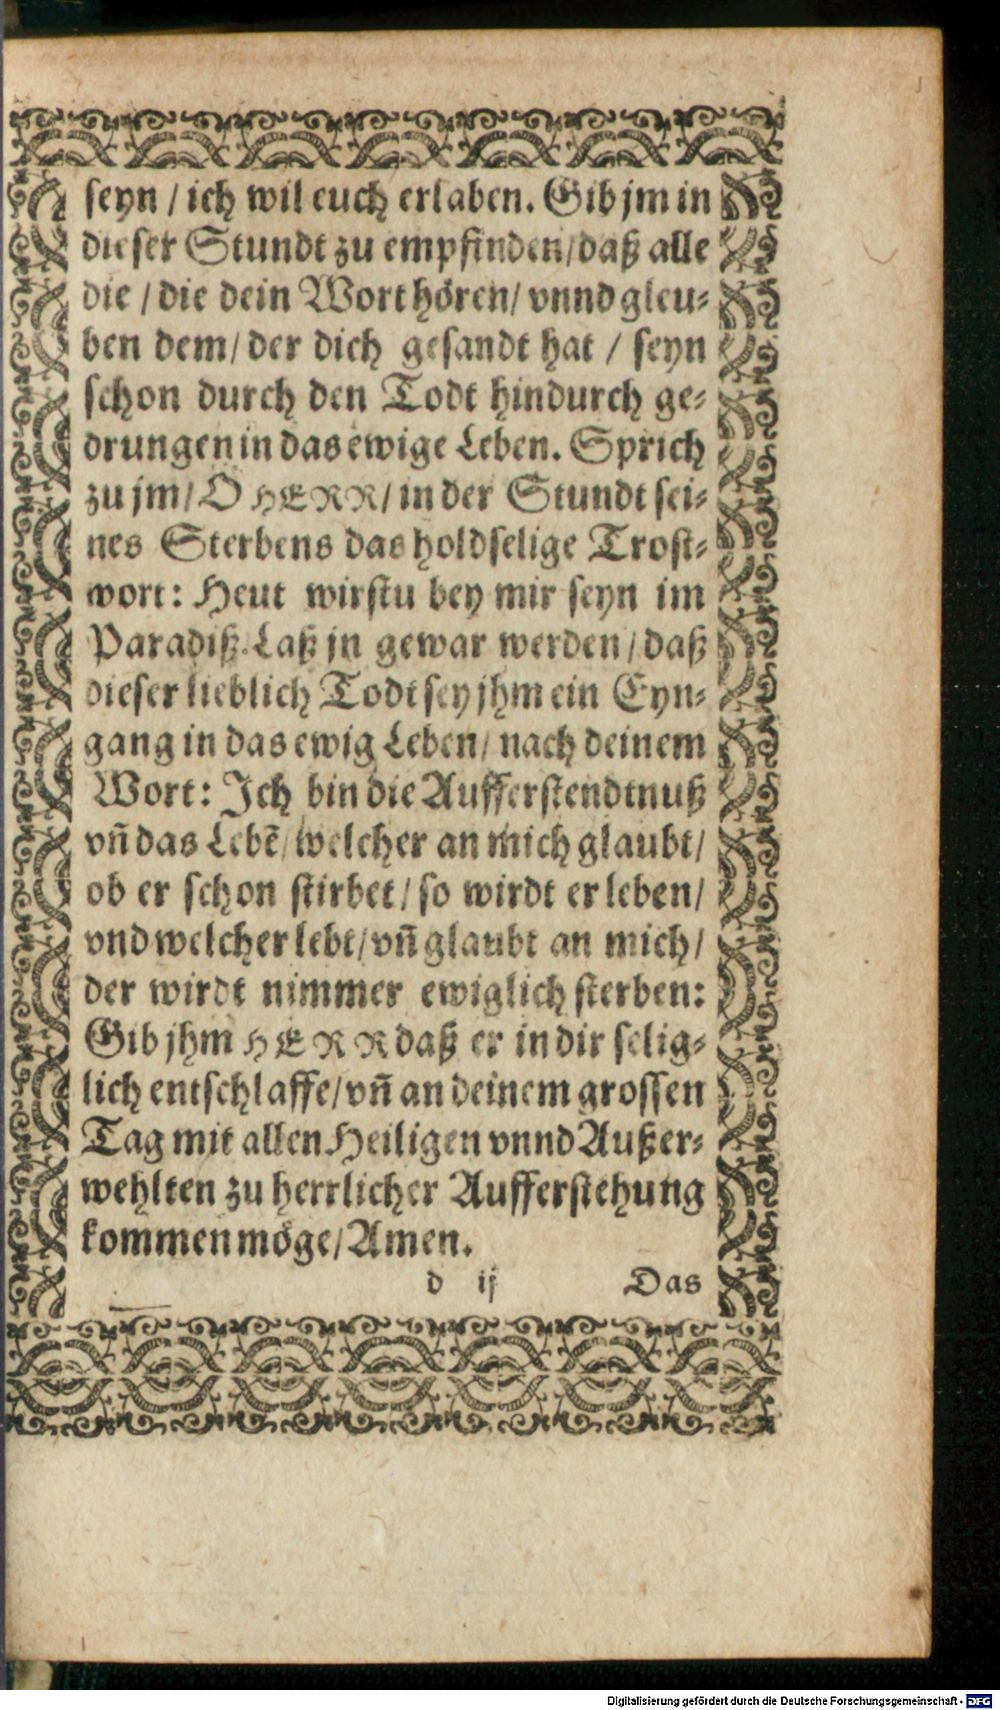 seyn / ich wil euch erlaben. Gib jm in
dieser Stundt zu empfinden/ daß alle
die / die dein Wort hören/ vnnd gleu⸗
ben dem/ der dich gesandt hat / seyn
schon durch den Todt hindurch ge⸗
drungen in das ewige Leben. Sprich
zu jm/ O HERR/ in der Stundt sei⸗
nes Sterbens das holdselige Trost⸗
wort: Heut wirstu bey mir seyn im
Paradiß. Laß jn gewar werden/ daß
dieser lieblich Todt sey jhm ein Eyn⸗
gang in das ewig Leben/ nach deinem
Wort: Ich bin die Aufferstendtnuß
vñ das Lebẽ/ welcher an mich glaubt/
ob er schon stirbet/ so wirdt er leben/
vnd welcher lebt/ vñ glaubt an mich/
der wirdt nimmer ewiglich sterben:
Gib jhm HERR daß er in dir selig⸗
lich entschlaffe/ vñ an deinem grossen
Tag mit allen Heiligen vnnd Außer⸗
wehlten zu herrlicher Aufferstehung
kommen möge/ Amen.
d ij Das
Digitalisierung gefördert durch die Deutsche Forschungsgemeinschaft - DFG